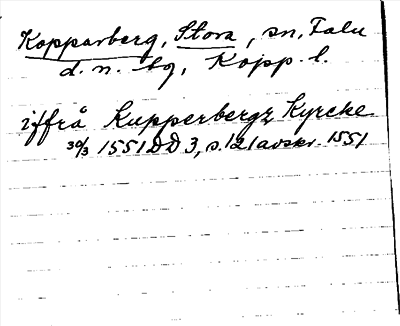 Kopparberg, Stora, sn, Falu
d. n. bg, Kopp. l.
iffrå Kupperbergz Kyrcke
30/3 1551 DD 3, s. 121 avskr. 1551